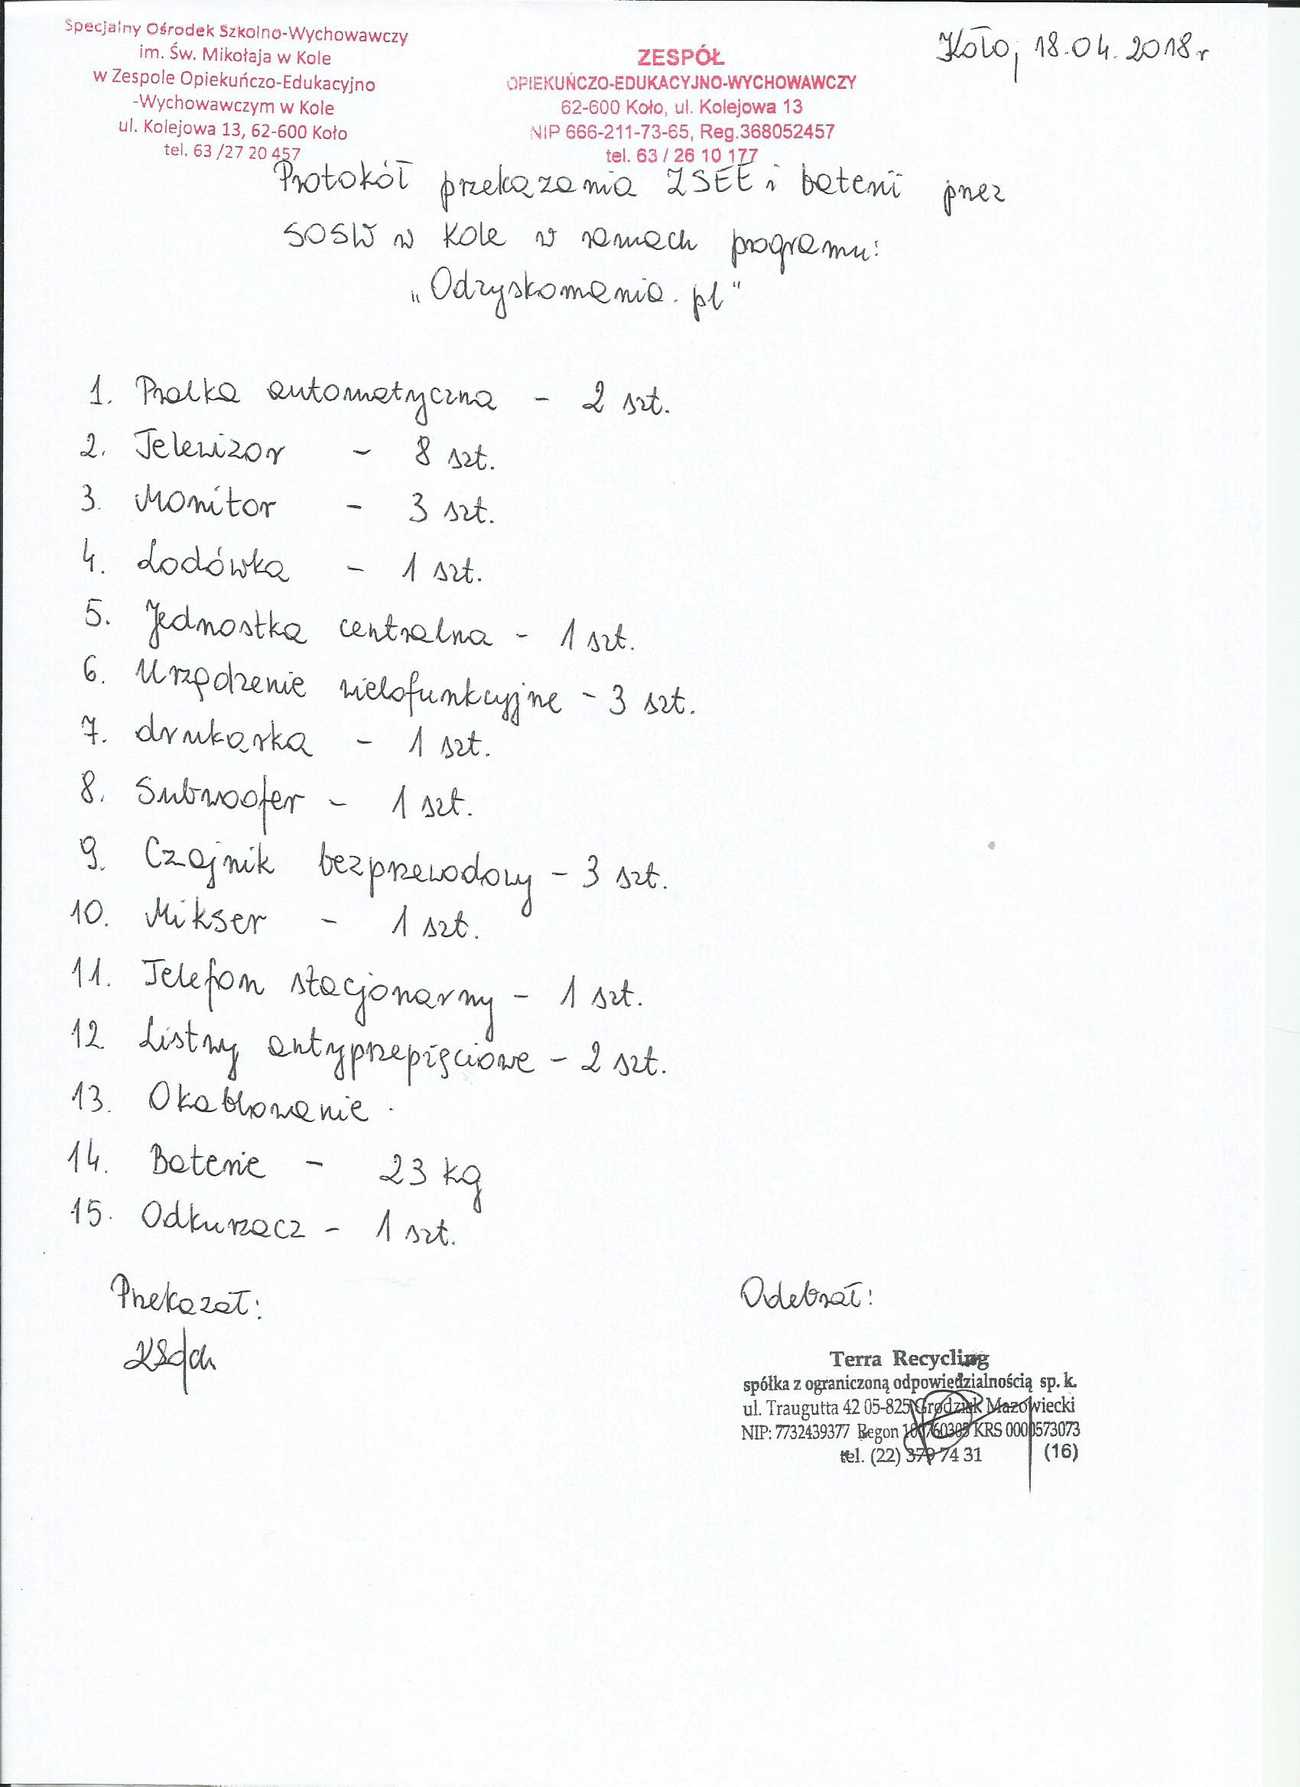 Specjalny Ośrodek Szkolno-Wychowawczy
im. Św. Mikołaja w Kole
w Zespole Opiekuńczo-Edukacyjno
-Wychowawczym w Kole
ul. Kolejowa 13, 62-600 Koło
tel. 63 /27 20 457
ZESPÓŁ
OPIEKUŃCZO-EDUKACYJNO-WYCHOWAWCZY
62-600 Koło, ul. Kolejowa 13
NIP 666-211-73-65, Reg.368052457
tel. 63 / 26 10 177
Koło, 18.04.2018r
Protokół przekazania ZSEE i baterii przez
SOSW w Kole w ramach programu:
„Odzyskomania.pl"
1. Pralka automatyczna - 2 szt.
2. Telewizor - 8 szt.
3. Monitor - 3 szt.
4. Lodówka - 1 szt.
5. Jednostka centralna - 1 szt.
6. Urządzenie wielofunkcyjne - 3 szt.
7. drukarka - 1 szt.
8. Subwoofer - 1 szt.
9. Czajnik bezprzewodowy - 3 szt.
10. Mikser - 1 szt.
11. Telefon stacjonarny - 1 szt.
12 Listwy antyprzepięciowe - 2 szt.
13. Okablowanie.
14. Baterie - 23 kg
15. Odkurzacz - 1 szt.
Przekazał:
Odebrał:
Terra Recycling
spółka z ograniczoną odpowiedzialnością sp. k.
ul. Traugutta 42 05-825 Grodzisk Mazowiecki
NIP: 7732439377 Regon KRS 0000573073
tel. (22) 379 74 31 (16)